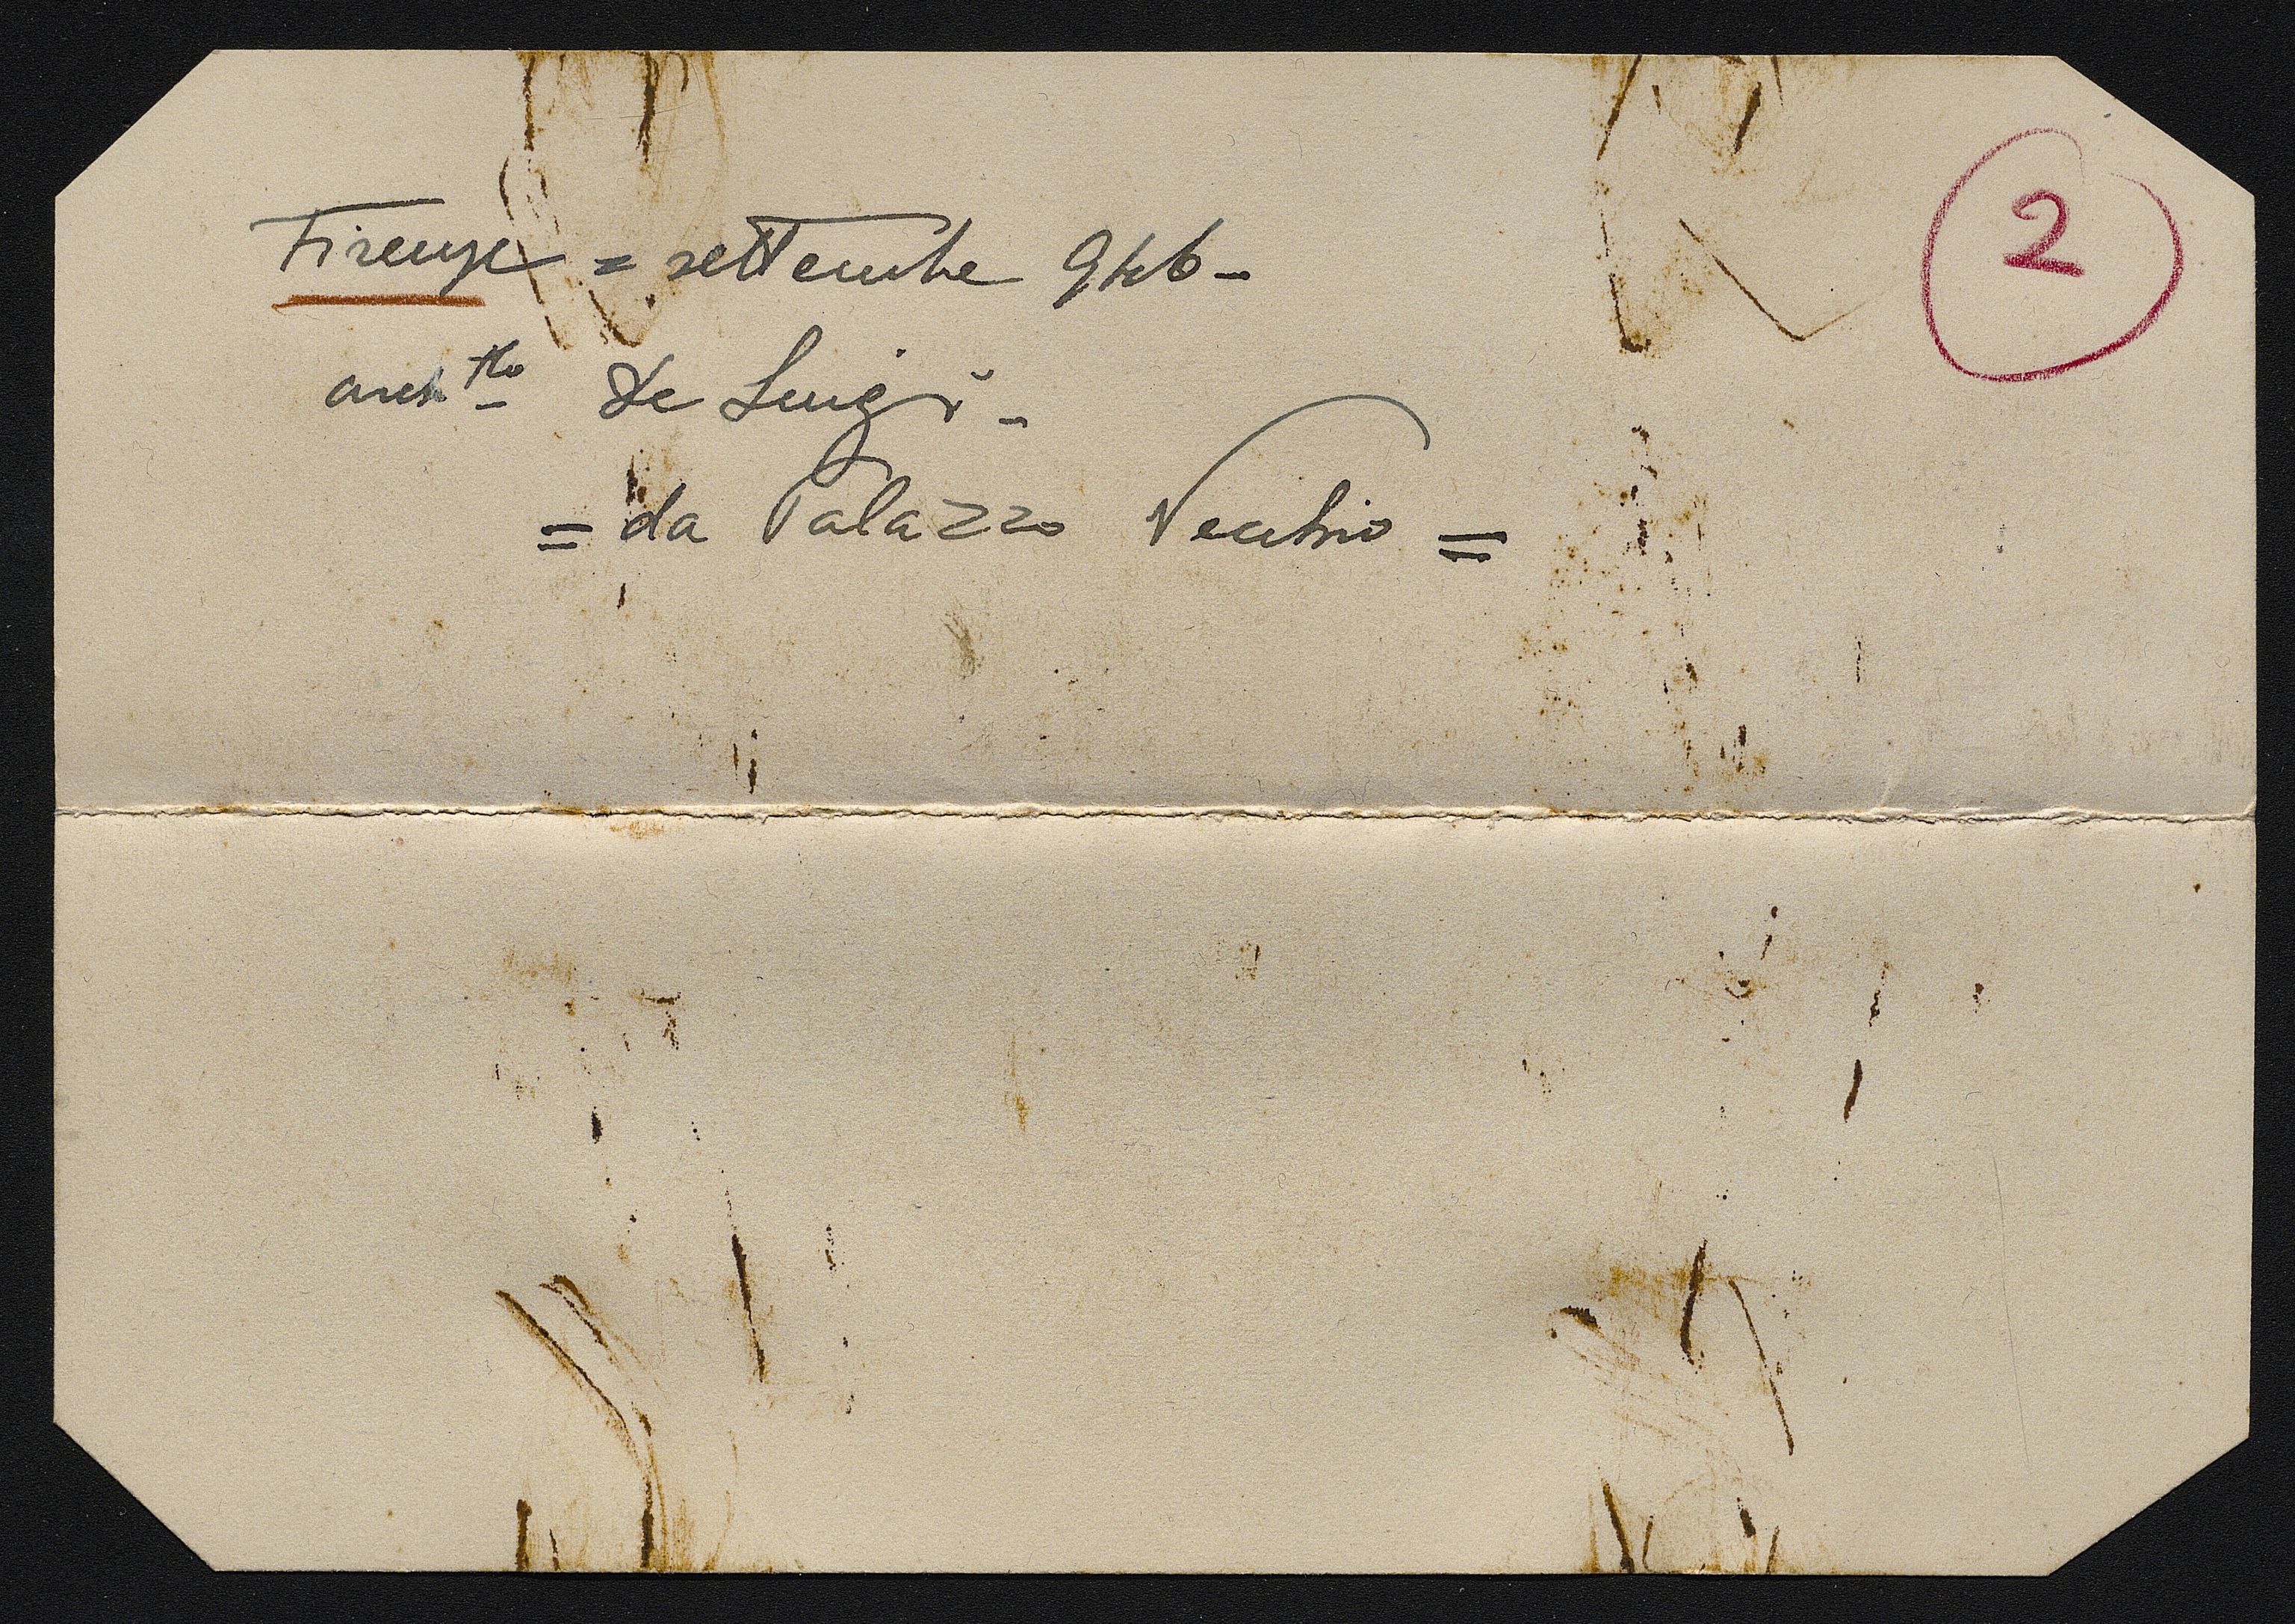 2
Firenze = settembre 946 -
arch.tto de Luigi -
= da Palazzo Vecchio =